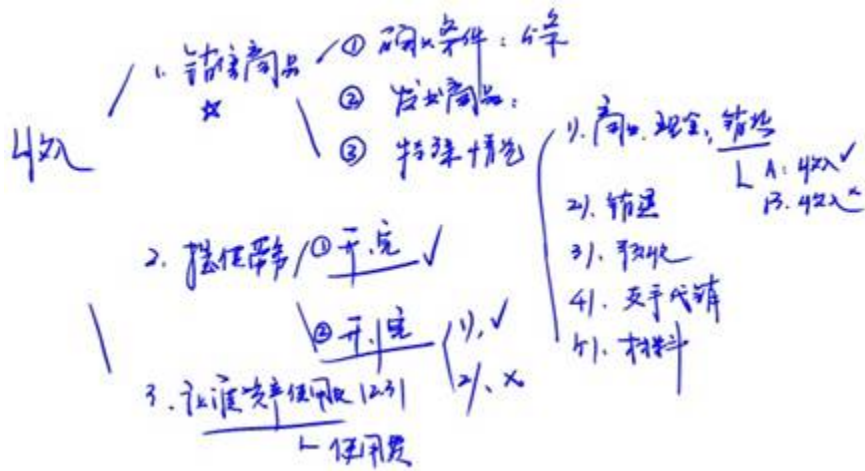 收入
1. 销售商品
☆
① 确认条件：5条
② 发出商品：
③ 特殊情况
1). 商业、现金、销折
A：收入✓
B. 收入×
2). 销退
3). 预收
4). 支手代销
5). 材料
2. 提供劳务
① 开、完 ✓
② 开|完
1)、✓
2)、×
3. 让渡资产使用权 12.31
使用费